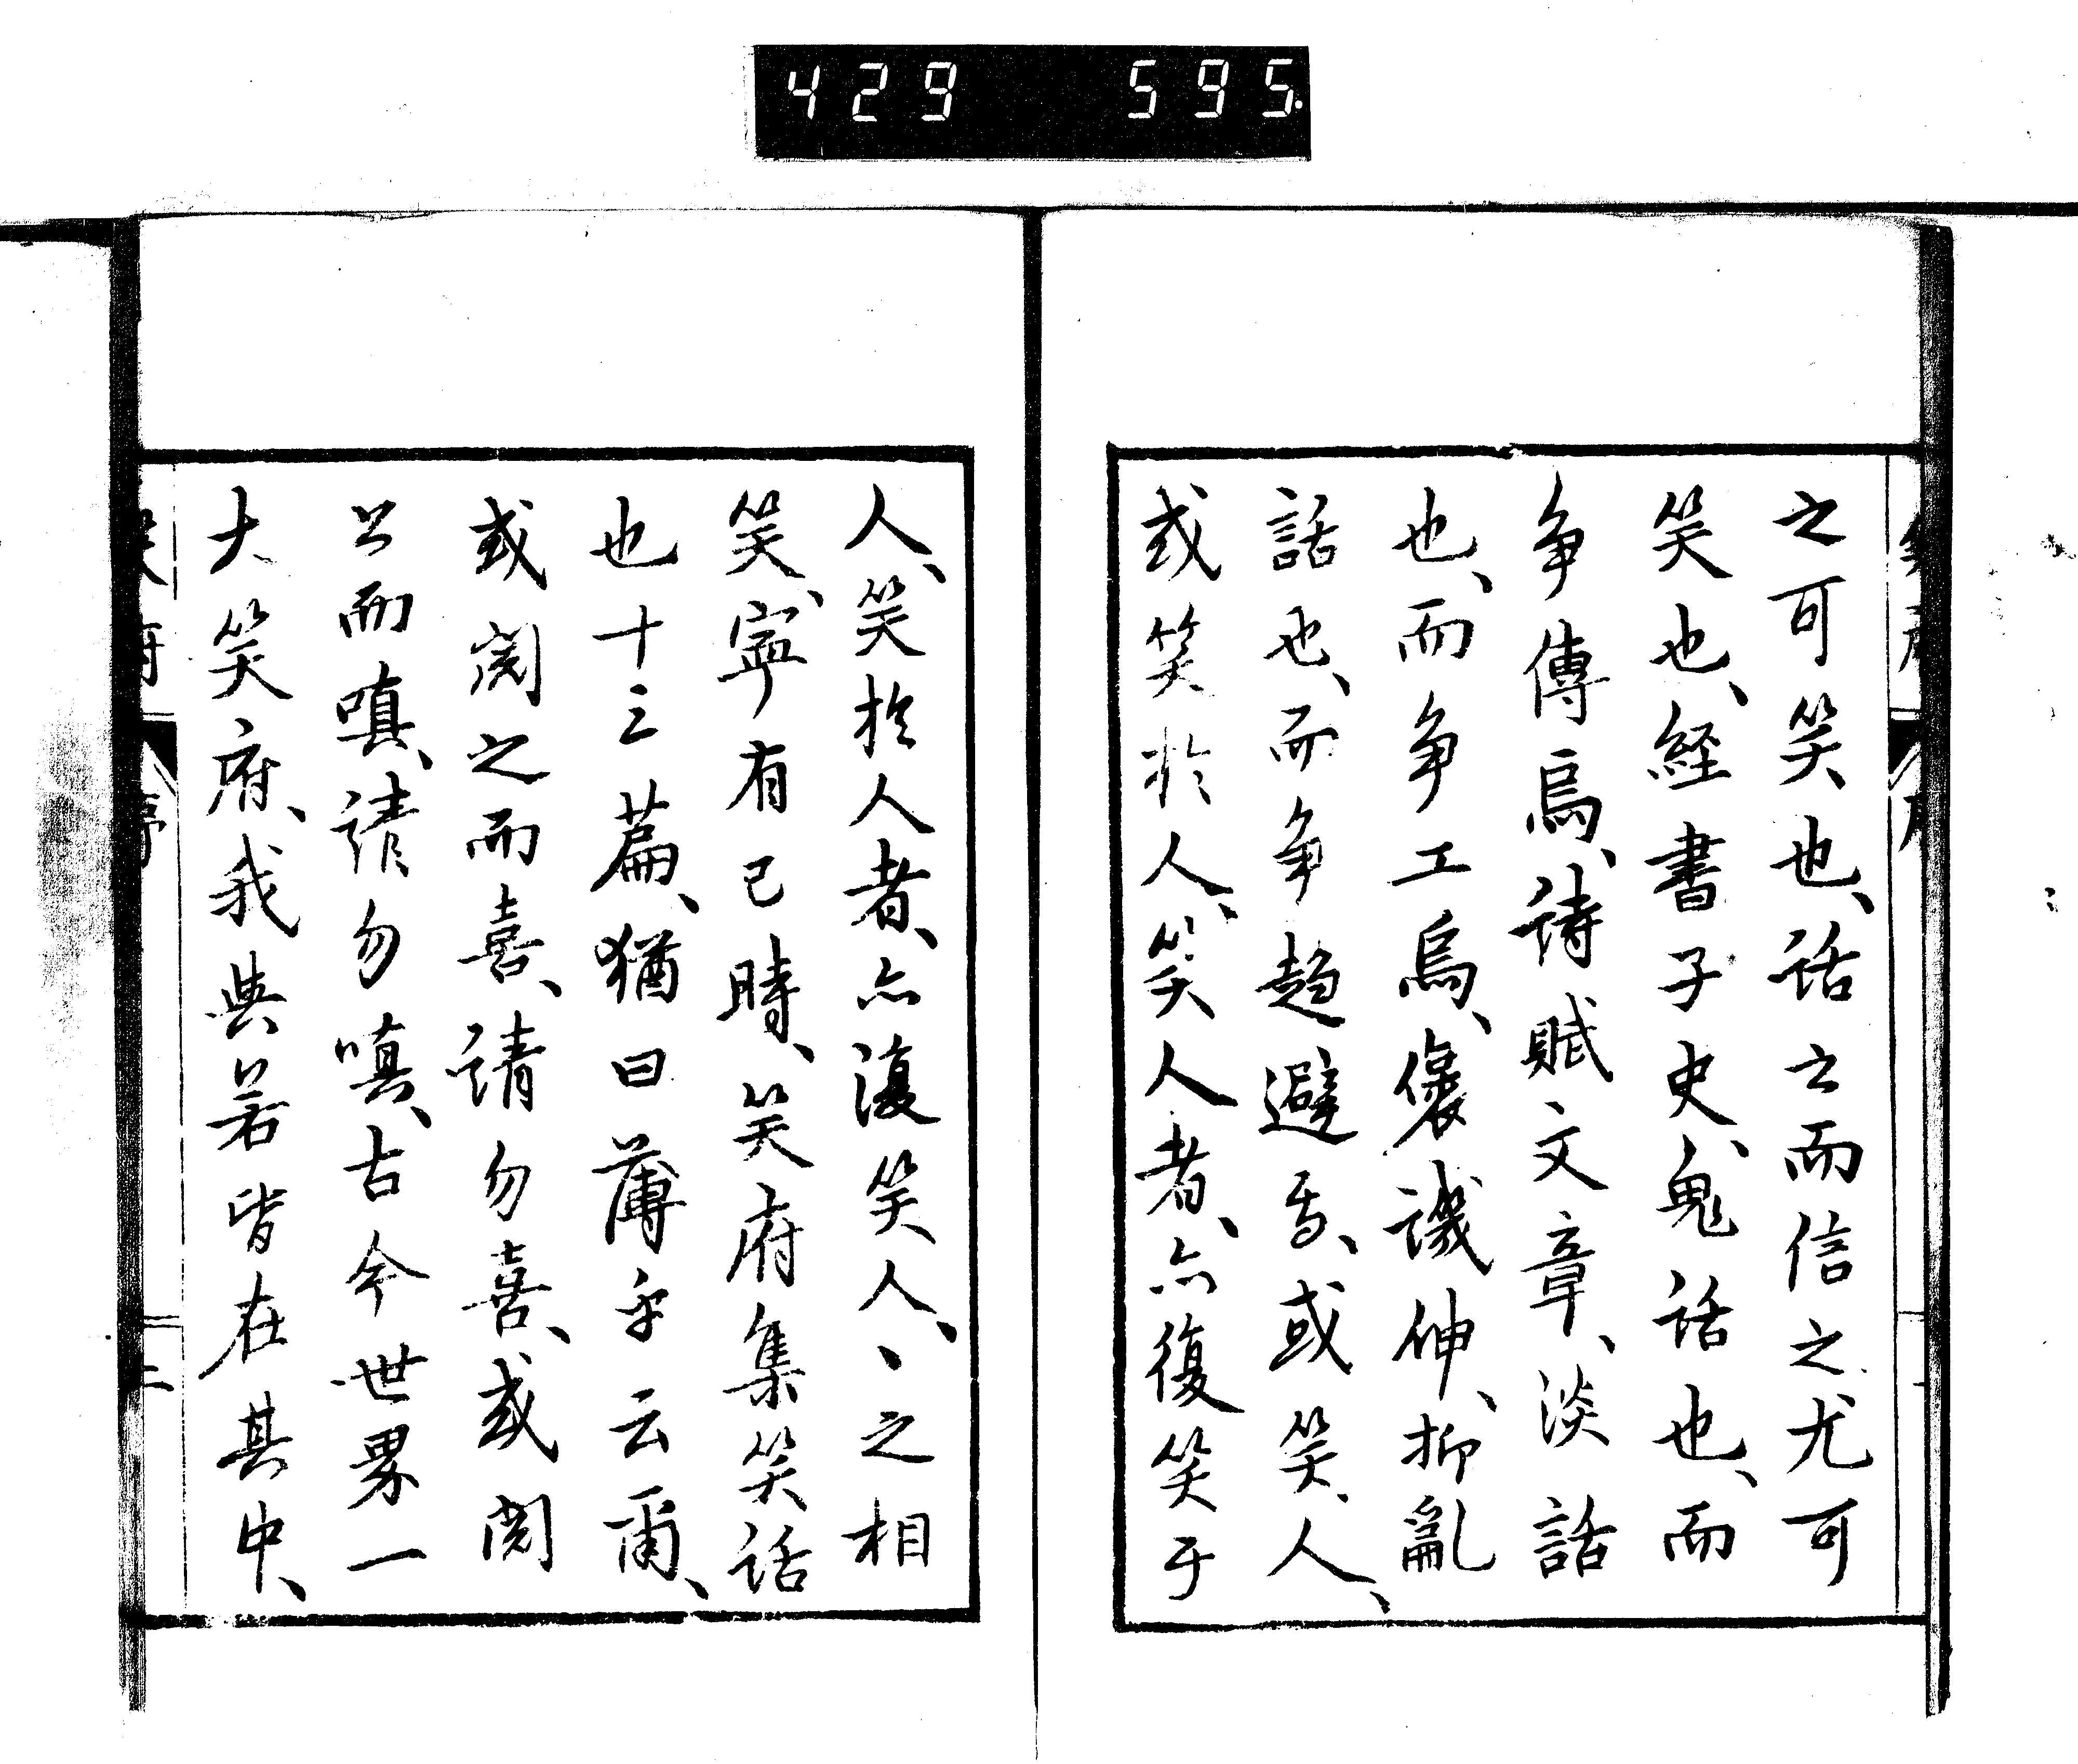 429 595.
之可笑也、話之而信之尤可
笑也、経書子史、鬼話也、而
争傳焉、詩賦文章、淡話
也、而争工焉、褒譏伸、抑亂
話也、而争趨避焉、或笑人、
或笑於人、笑人者、亦復笑于
人、笑於人者、亦復笑人、、之相
笑、寧有已時、笑府集笑話
也十三篇、猶曰薄乎云爾、
或閲之而喜、請勿喜、或閲
之而嗔、請勿嗔、古今世界一
大笑府、我與若皆在其中、
笑府 序 二